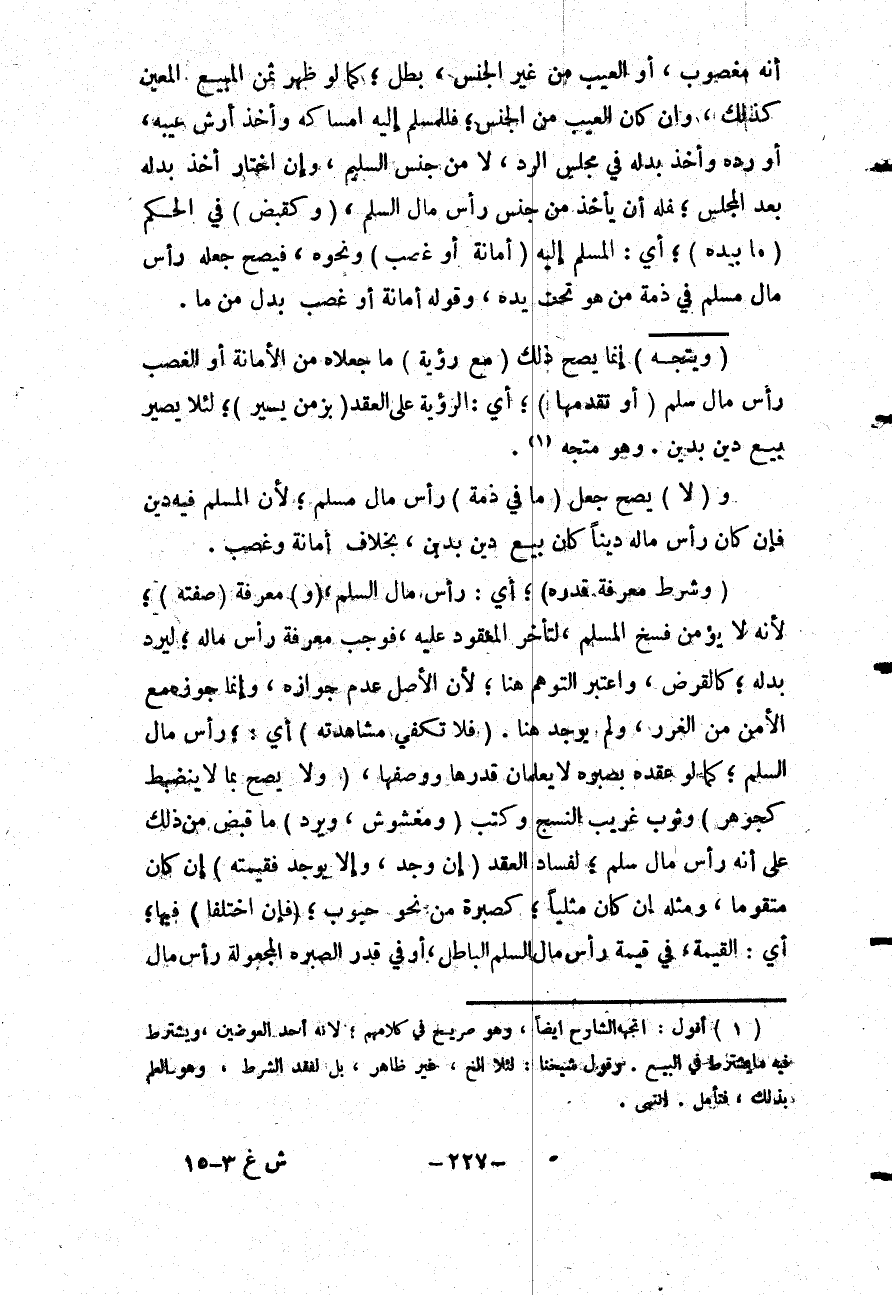 أنه مغصوب ، أو العيب من غير الجنس ، بطل ؛ كما لو ظهر ثمن المبيع المعين
كذلك ، وان كان العيب من الجنس ؛ فللمسلم إليه امساكه وأخذ أرش عيبه ،
أو رده وأخذ بدله في مجلس الرد ، لا من جنس السليم ، وإن اختار أخذ بدله
بعد المجلس ؛ فله أن يأخذ من جنس رأس مال السلم ، ( وكقبض ) في الحكم
( ما بيده ) ؛ أي : المسلم إليه ( أمانة أو غصب ) ونحوه ، فيصح جعله رأس
مال مسلم في ذمة من هو تحت يده ، وقوله أمانة أو غصب بدل من ما .
( ويتجه ) إنما يصح ذلك ( مع رؤية ) ما جعلاه من الأمانة أو الغصب
رأس مال سلم ( أو تقدمها ) ؛ أي : الرؤية على العقد ( بزمن يسير ) ؛ لئلا يصير
بيع دين بدين . وهو متجه (١) .
و ( لا ) يصح جعل ( ما في ذمة ) رأس مال مسلم ؛ لأن المسلم فيه دين
فإن كان رأس ماله ديناً كان بيع دين بدين ، بخلاف أمانة وغصب .
( وشرط معرفة قدره) ؛ أي : رأس مال السلم ، (و) معرفة ( صفته ) ؛
لأنه لا يؤمن فسخ المسلم ، لتأخر المعقود عليه ، فوجب معرفة رأس ماله ؛ ليرد
بدله ؛ كالقرض ، واعتبر التوهم هنا ؛ لأن الأصل عدم جوازه ، وإنما جوزه مع
الأمن من الغرر ، ولم يوجد هنا . ( فلا تكفي مشاهدته ) أي : ؛ رأس مال
السلم ؛ كما لو عقده بصبره لا يعلمان قدرها ووصفها ، ( ولا يصح بما لا ينضبط
كجوهر ) وثوب غريب النسج وكتب ( ومغشوش ، ويرد ) ما قبض من ذلك
على أنه رأس مال سلم ؛ لفساد العقد ( إن وجد ، وإلا يوجد فقيمته ) إن كان
متقوما ، ومثله ان كان مثلياً ؛ كصبرة من نحو حبوب ؛ (فإن اختلفا ) فيها ؛
أي : القيمة ، في قيمة رأس مال السلم الباطل ، أو في قدر الصبره المجعولة رأس مال
( ١ ) أقول : اتجه الشارح ايضاً ، وهو صريح في كلامهم ؛ لانه أحد العوضين ، ويشترط
فيه ما يشترط في البيع . وقول شيخنا : لئلا الخ ، غير ظاهر ، بل لفقد الشرط ، وهو العلم
بذلك ، فتأمل . انتهى .
-٢٢٧- ش غ ٣-١٥